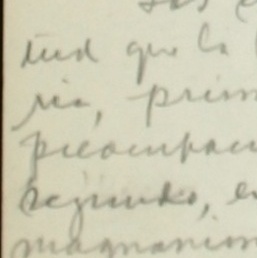 tud que la
ria, prim
preocupac
segundo, e
magnanim